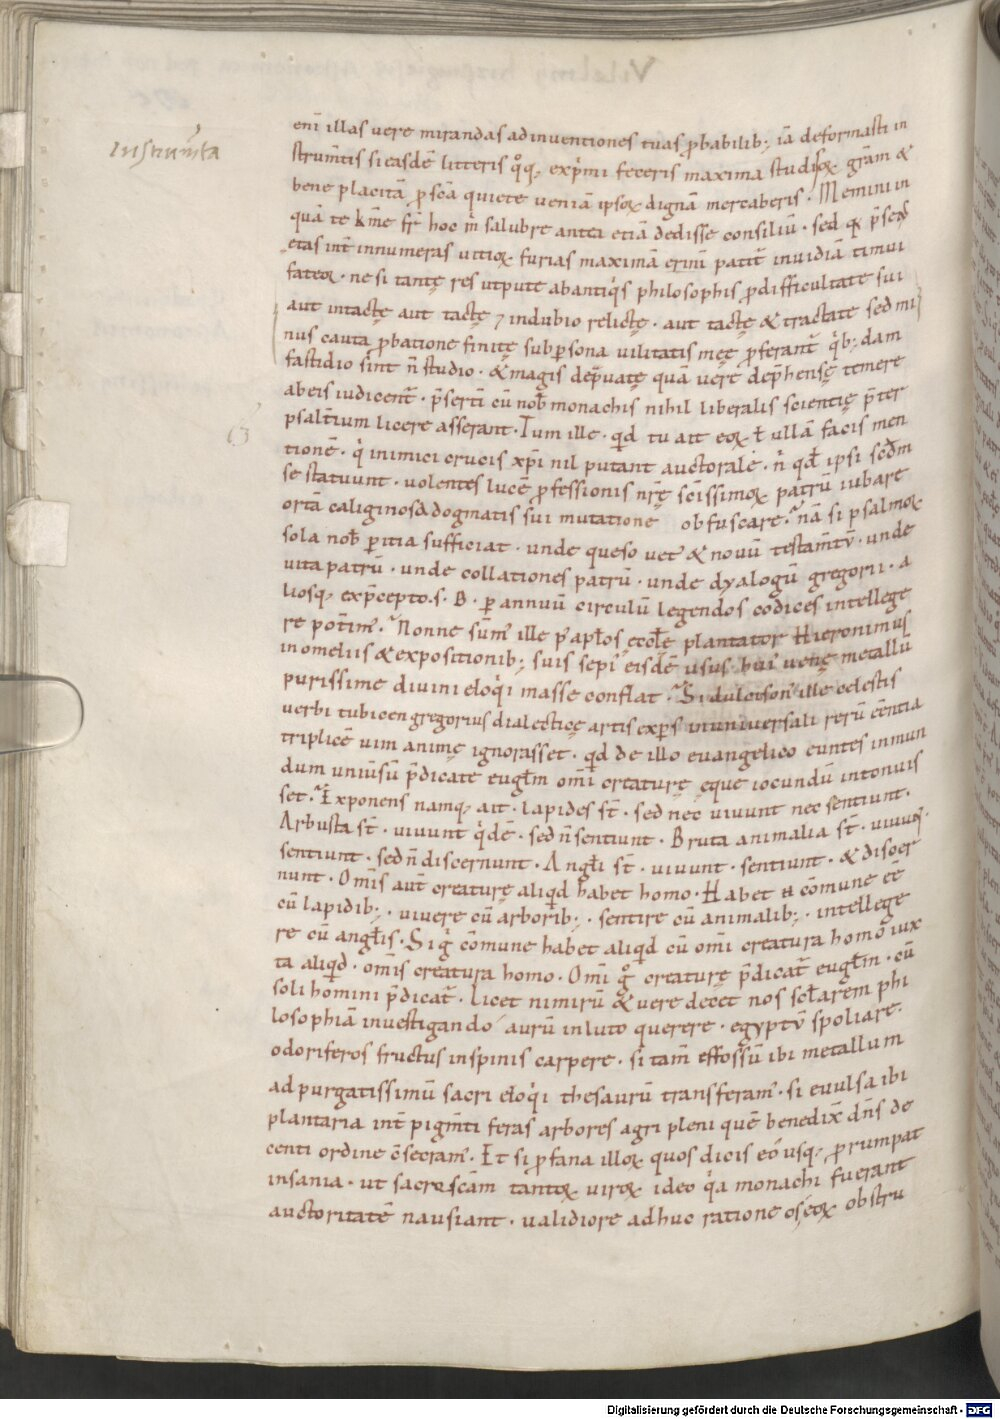 instrum̄ta
enī illas vere mirandas adinventiones tuas ꝓbabilib; iā deformasti in
strum̄tis si easdē litteris qͦq; exp̍mi feceris maxima studioꝝ gr̄am &
bene placitā ꝓ sc̄a quiete veniā ipsoꝝ dignā mercaberis · Memini un
quā te km̄e fr̄ hoc m̍ salubre antea etiā dedisse consiliū · sed
etas int̄ innumeras vitioꝝ furias maximā erim̄ patit̄ invidiā timui
fateoꝝ · ne si tantę res utpute abantiq̍s philosophis ꝓdifficultate sui
aut intactę aut tactę ⁊ indubio relictę · aut tactę & tractate sed mi
nus cauta ꝓbatione finitę sub ꝑsona vilitatis męę ꝓferant̄ q̍b; dam
fastidio sint n̄ studio · & magis dep̄vatę quā vere dep̄hensę temere
abeis iudicent̄ · p̄sertī cū nob̄ monachis nihil liberalis scientię p̄ter
psalt̄ium licere asserant · Tum ille · qd̄ tu ait eoꝝ ł ullā facis men
tionē · q̍ inimici crucis xp̄i nil putant auctorale · n̄ qd̄ ipsi sc̄dm
se statuunt · volentes lucē ꝓfessionis nr̄ę sc̄issimoꝝ patrū iubare
ortā caliginos& dogmatis sui mutatione obfuscare · Nā si psalmoꝝ
sola nob̄ ꝑitia sufficiat · unde queso vet̄ & novū testam̄tv̄ · unde
vita patrū · unde collationes patrū · unde dyalogū gregorii · a
liosq; exp̄cepto · s · B · ꝑ annuū circulū legendos codices intellege
re pot̄im̄ · Nonne sūm̄ ille p̍ apl̄os eccl̄ę plantator Hieronimus
in omeliis & expositionib; suis sepi̍ eisdē usus · hui̍ uenę metallū
purissime divini eloq̍i masse conflat · Si dulcison̍ ille celestis
verbi tubicen gregorius dialecticę artis expꝑs inuniversali rerū cēntia
triplicē vim animę ignorasset · qd̄ de illo evangelico euntes inmun
dum univ̄sū p̄dicate eugl̄m omī creaturę ęque iocundū intonuis
set · Exponens namq; ait · lapides st̄ · sed nec vivunt nec sentiunt ·
Arbusta st̄ · vivunt q̍dē · sed n̄ sentiunt · Bruta animalia st̄ · vivunt ·
sentiunt · sed n̄ discernunt · Angl̄i st̄ · vivunt · sentiunt · & discer
nunt · Om̄is aut̄ creaturę aliqd̄ habet homo · Habet cōmune eē
cū lapidib; · vivere cū arborib; · sentire cū animalib; · intellege
re cū angl̄is · Si g̍ cōmune habet aliqd̄ cū omī creatura homo iux
ta aliqd̄ · om̄is creatura homo · Omī gͦ creaturę p̄dicat̄ eugl̄m · cū
soli homini p̄dicat̄ · licet nimirū & vere decet nos scl̄arem phi
losophiā investigando aurū inluto querere · egyptv̄ spoliare ·
odoriferos fructus inspinis carpere · si tam̄ effossū ibi metallum
ad purgatissimū sacri eloq̍i thesaurū transferam̍ · si evulsa ibi
plantaria int̄ pigm̄ti feras arbores agri pleni quē benedix̄ dn̄s de
centi ordine c̄seram̍ · Et si ꝓfana illoꝝ quos dicis eóusq; ꝓrumpat
insania · ut sacrosc̄am tantoꝝ viroꝝ · ideo q̍a monachi fuerant
auctoritatē nausiant · validiore adhuc ratione os eoꝝ obstru
Digitalisierung gefördert durch die Deutsche Forschungsgemeinschaft - DFG